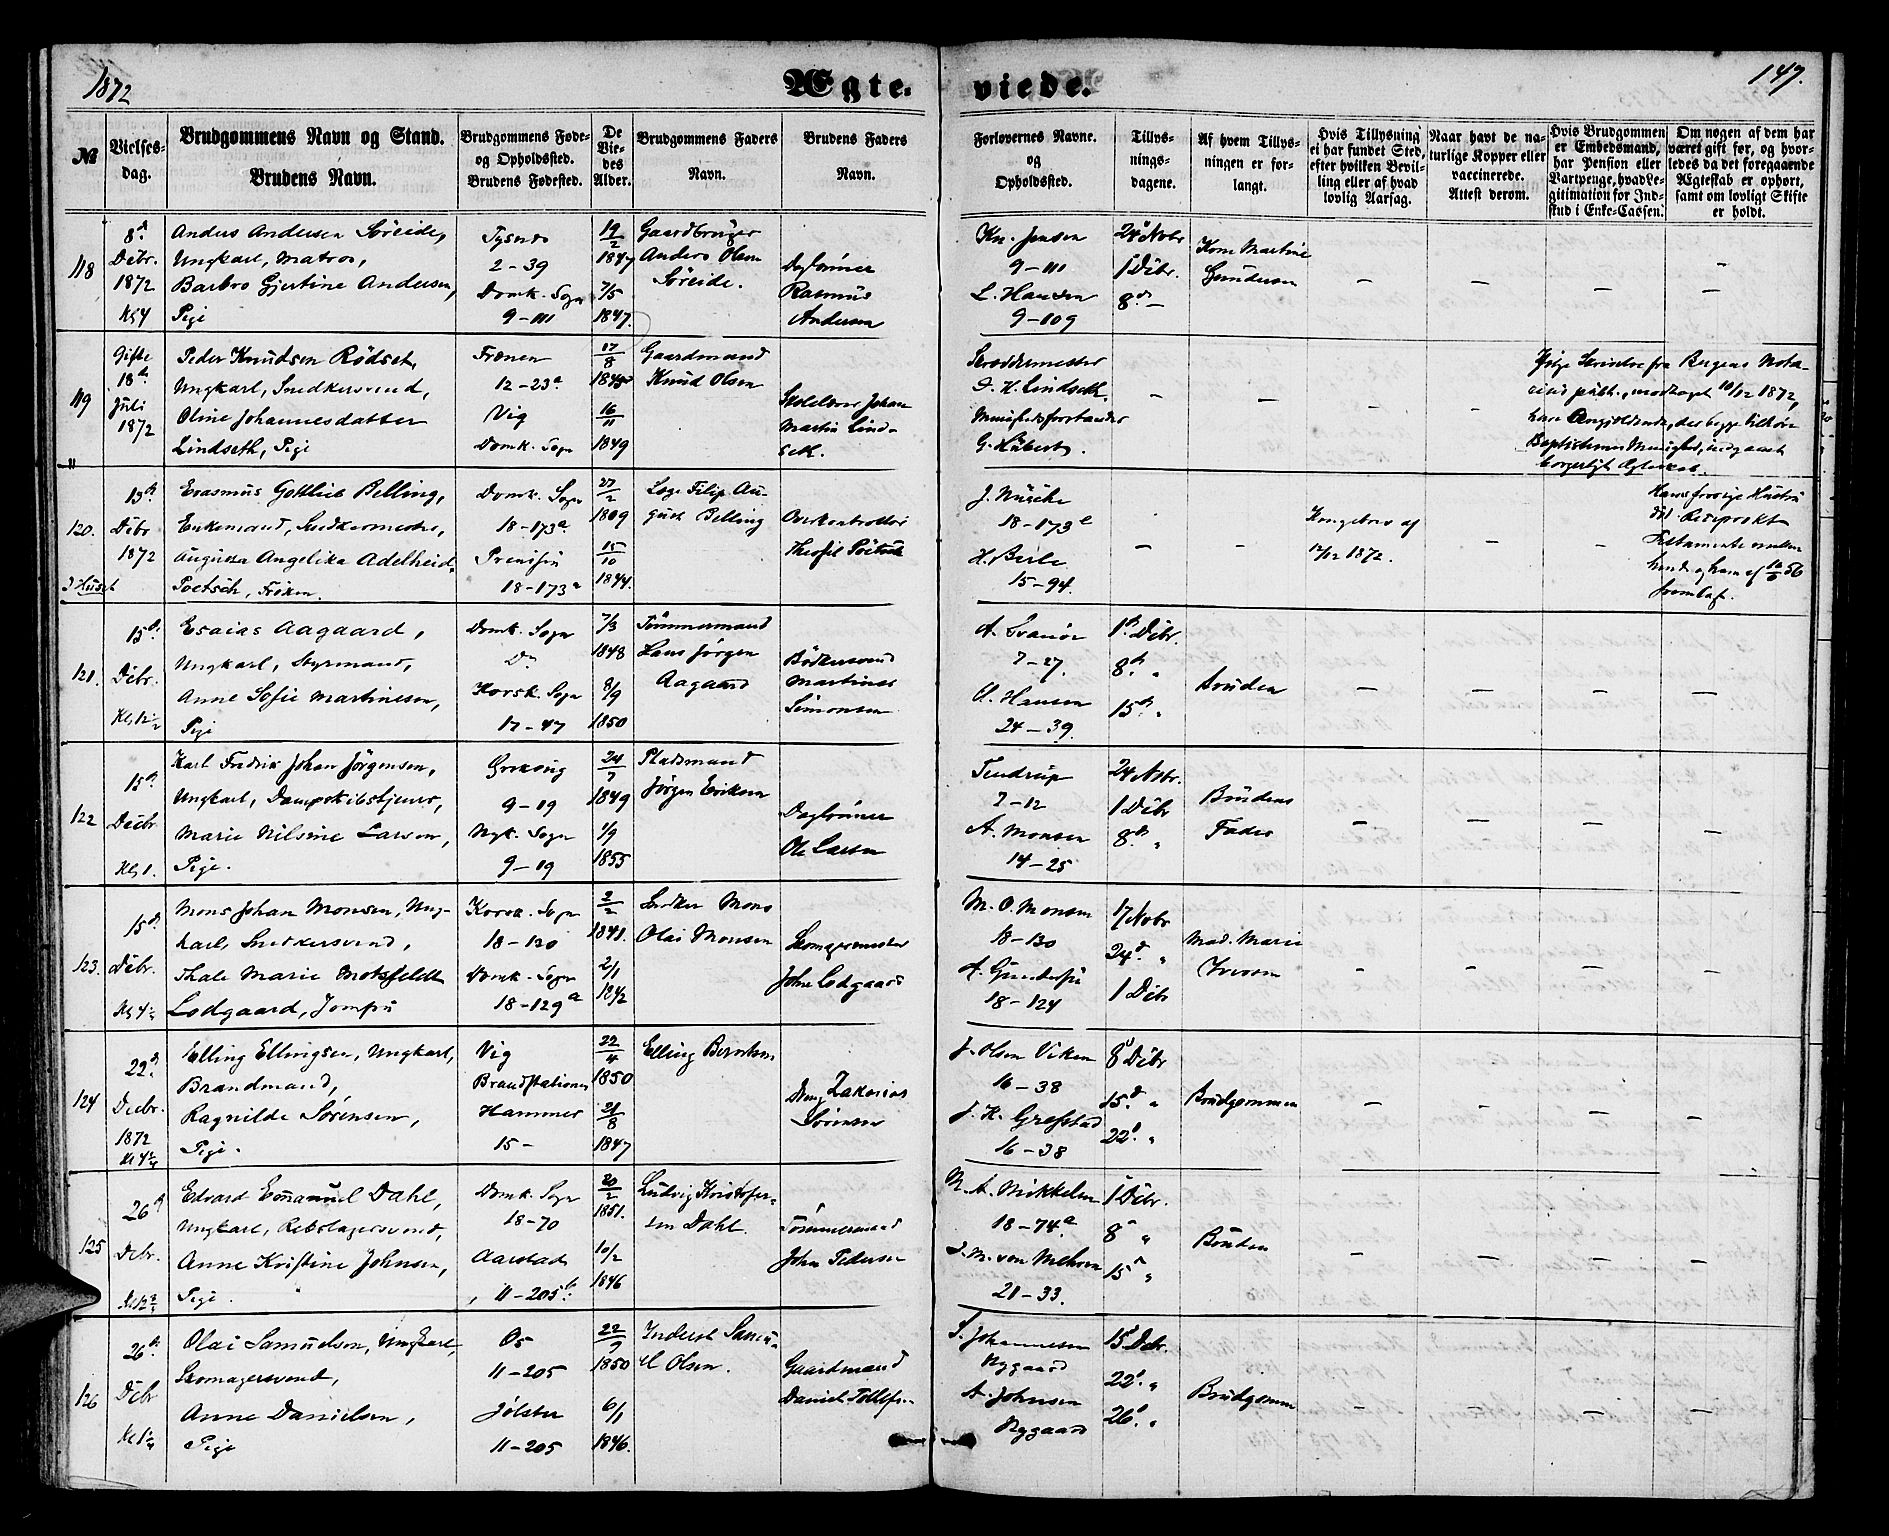 1872
Ægte-
viede.
147.
№
Vielses-
dag.
Brudgommens Navn og Stand.
Brudens Navn.
Brudgommens Føde-
og Opholdssted.
Brudens Fødested.
De
Vie-
des
Alder.
Brudgommens Faders
Navn.
Brudens Faders
Navn.
Forlovernes Navne.
og
Opholdssted.
Tillys-
nings-
dagene.
Af hvem Tillys-
ningen er for-
langt.
Hvis Tillysning
ei har fundet Sted,
efter hvilken Bevil-
ling eller af hvad
lovlig Aarsag.
Naar havt de na-
turlige Kopper eller
vaccinerede.
Attest derom.
Hvis Brudgommen
er Embedsmand,
har Pension eller
Vartpenge, hvad Le-
gitimation for Ind-
skud i Enke-Cassen.
Om nogen af dem har
været gift før, og hvor-
ledes da det foregaaende
Ægteskab er ophørt,
samt om lovligt Skifte
er holdt.
118
8d.
Debr.
1872
Kl 4
Anders Andersen Søreide,
Ungkarl, Matros,
Barbro Gjertine Andersen,
Pige
Tysnes
2-39
Domk. Sogn
9-111
19/2
1847
7/5
1847.
Gaardbruger
Anders Olsen
Søreide.
Daglønner
Rasmus
Andersen
Kn. Jensen
9-111
L. Hansen
9-109
24d Nobr
1 Debr.
8d -
Kone Martine
Gundersen
119
Gifte
18d.
Juli
1872
Peder Knudsen Rødset,
Ungkarl, Snedkersvend,
Oline Johannesdatter
Lindseth, Pige
Frænen
12-23a
Vig
Domk. Sogn
17/8
1845
16/11
1849
Gaardmand
Knud Olsen
Skolelærer Johan
Martin Lind-
seth.
Skræddermester
O. H. Lindseth
Menighedsforstander
G. Hübert.
Ifølge Skrivelse fra Bergens Nota-
rius publ., modtaget 10/12 1872,
have Angjældende, der begge tilhøre
Baptisternes Menighed, indgaaet
borgerligt Ægteskab.
120.
13d.
Debr
1872
I Huset
Erasmus Gottlieb Belling,
Enkemand, Snedkermester,
Augusta Angelika Adelheid
Poetsch, Frøken.
Domk. Sogn
18-173a
Preussen
18-173a
27/2
1809
15/10
1844.
Læge Filip Au-
gust Belling
Overkontrollør
Theofil Poetsch
J. Nüsche
18-173c
H. Berle
15-94.
Kongebrev af
12/12 1872.
Hans forrige Hustru
død. Reciprokt
Testamente mellem
hende og ham af 10/6 56
forevist.
121.
15d.
Debr.
Kl 12 1/2
Esaias Aagaard,
Ungkarl, Styrmand,
Anne Sofie Martinesen,
Pige
Domk. Sogn
Do
Korsk. Sogn
17-47
7/3
1848
8/9
1850
Tømmermand
Hans Jørgen
Aagaard
Bødkersvend
Martines
Simonsen
A. Svanøe
7-27.
O. Hansen
24-39.
1d Debr.
8d. "
15d. "
Bruden
122
15d
Decbr
Kl 1.
Karl Fredrik Johan Jørgensen,
Ungkarl, Dampskibstjener,
Marie Nilsine Larsen,
Pige.
9-19
Nyk. Sogn
9-19
24/7
1849
1/9
1855
Pladsmand
Jørgen Eriksen
Daglønner
Ole Larsen
Tendrup
7-12
A. Monsen
14-25
24 Nobr.
1 Debr
8d. "
Brudens
Fader
123.
15d
Debr.
Kl 4 1/2
Mons Johan Monsen, Ung-
karl, Snedkersvend,
Thale Marie Motzfeldt
Lodgaard, Jomfru
Korsk. Sogn
18-130
Domk. Sogn
18-129a
2/2
1841.
2/1
1842
Snedker Mons
Olai Monsen
Skomagermester
John Lodgaard
M. O. Monsen
18-130
A. Gundersen
18-124
17 Nobr
24d. "
1 Debr
Mad. Marie
Iversen
124
22d.
Decbr.
1872
Elling Ellingsen, Ungkarl,
Brandmand,
Ragnilde Sørensen,
Pige.
Vig
Brandstationen
Hammer
15-
22/4
1850
21/8
1847
Elling Berntsen
Zakarias
Sørensen
J. Olsen Viken
16-38
J. H. Grefstad
16-38
8d Debr
15d. "
22d. "
Brudgommen
125
26d
Debr.
Edvard Emanuel Dahl,
Ungkarl, Rebslagersvend,
Anne Kristine Johnsen,
Pige.
Domk. Sogn
18-70
Aarstad
11-205b.
20/2
1851.
10/2
1846
Ludvig Kristofer-
sen Dahl.
Tømmermand
John Pedersen
M. A. Mikkelsen
18-74a
J. M. von Mehren
21-33.
1 Debr.
8d "
15d "
Bruden
126
26d.
Debr
Kl 1 1/4
Olai Samuelsen, Ungkarl,
Skomagersvend,
Anne Danielsen,
Pige
Os
11-205
Jølster
11-205
22/9
1850
6/1
1846.
Inderst Samu-
el Olsen.
Gaardmand
Daniel Tollefsen
S. Johannesen
Nygaard
A. Johnsen
Nygaard
15d Debr.
22d. "
26d. "
Brudgommen